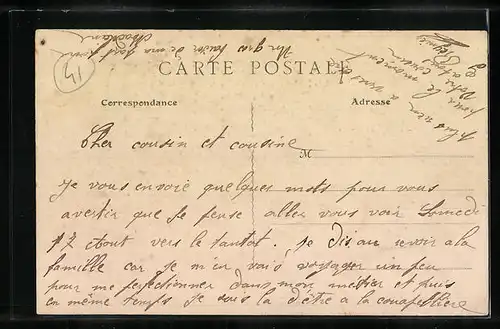 CARTE POSTALE
Correspondance
Adresse
M
Cher cousin et cousine
Je vous envoie quelques mots pour vous
avertir que je pense aller vous voir Samedi
17 Aout vers le tantot. Je dis au revoir a la
famille car je m'en vais voyager un peu
pour me perfectionner dans mon métier et puis
en même temps je suis la d'être a la
Un gros baiser de ma part
Plus rien a vous
pour le moment
Votre cousin